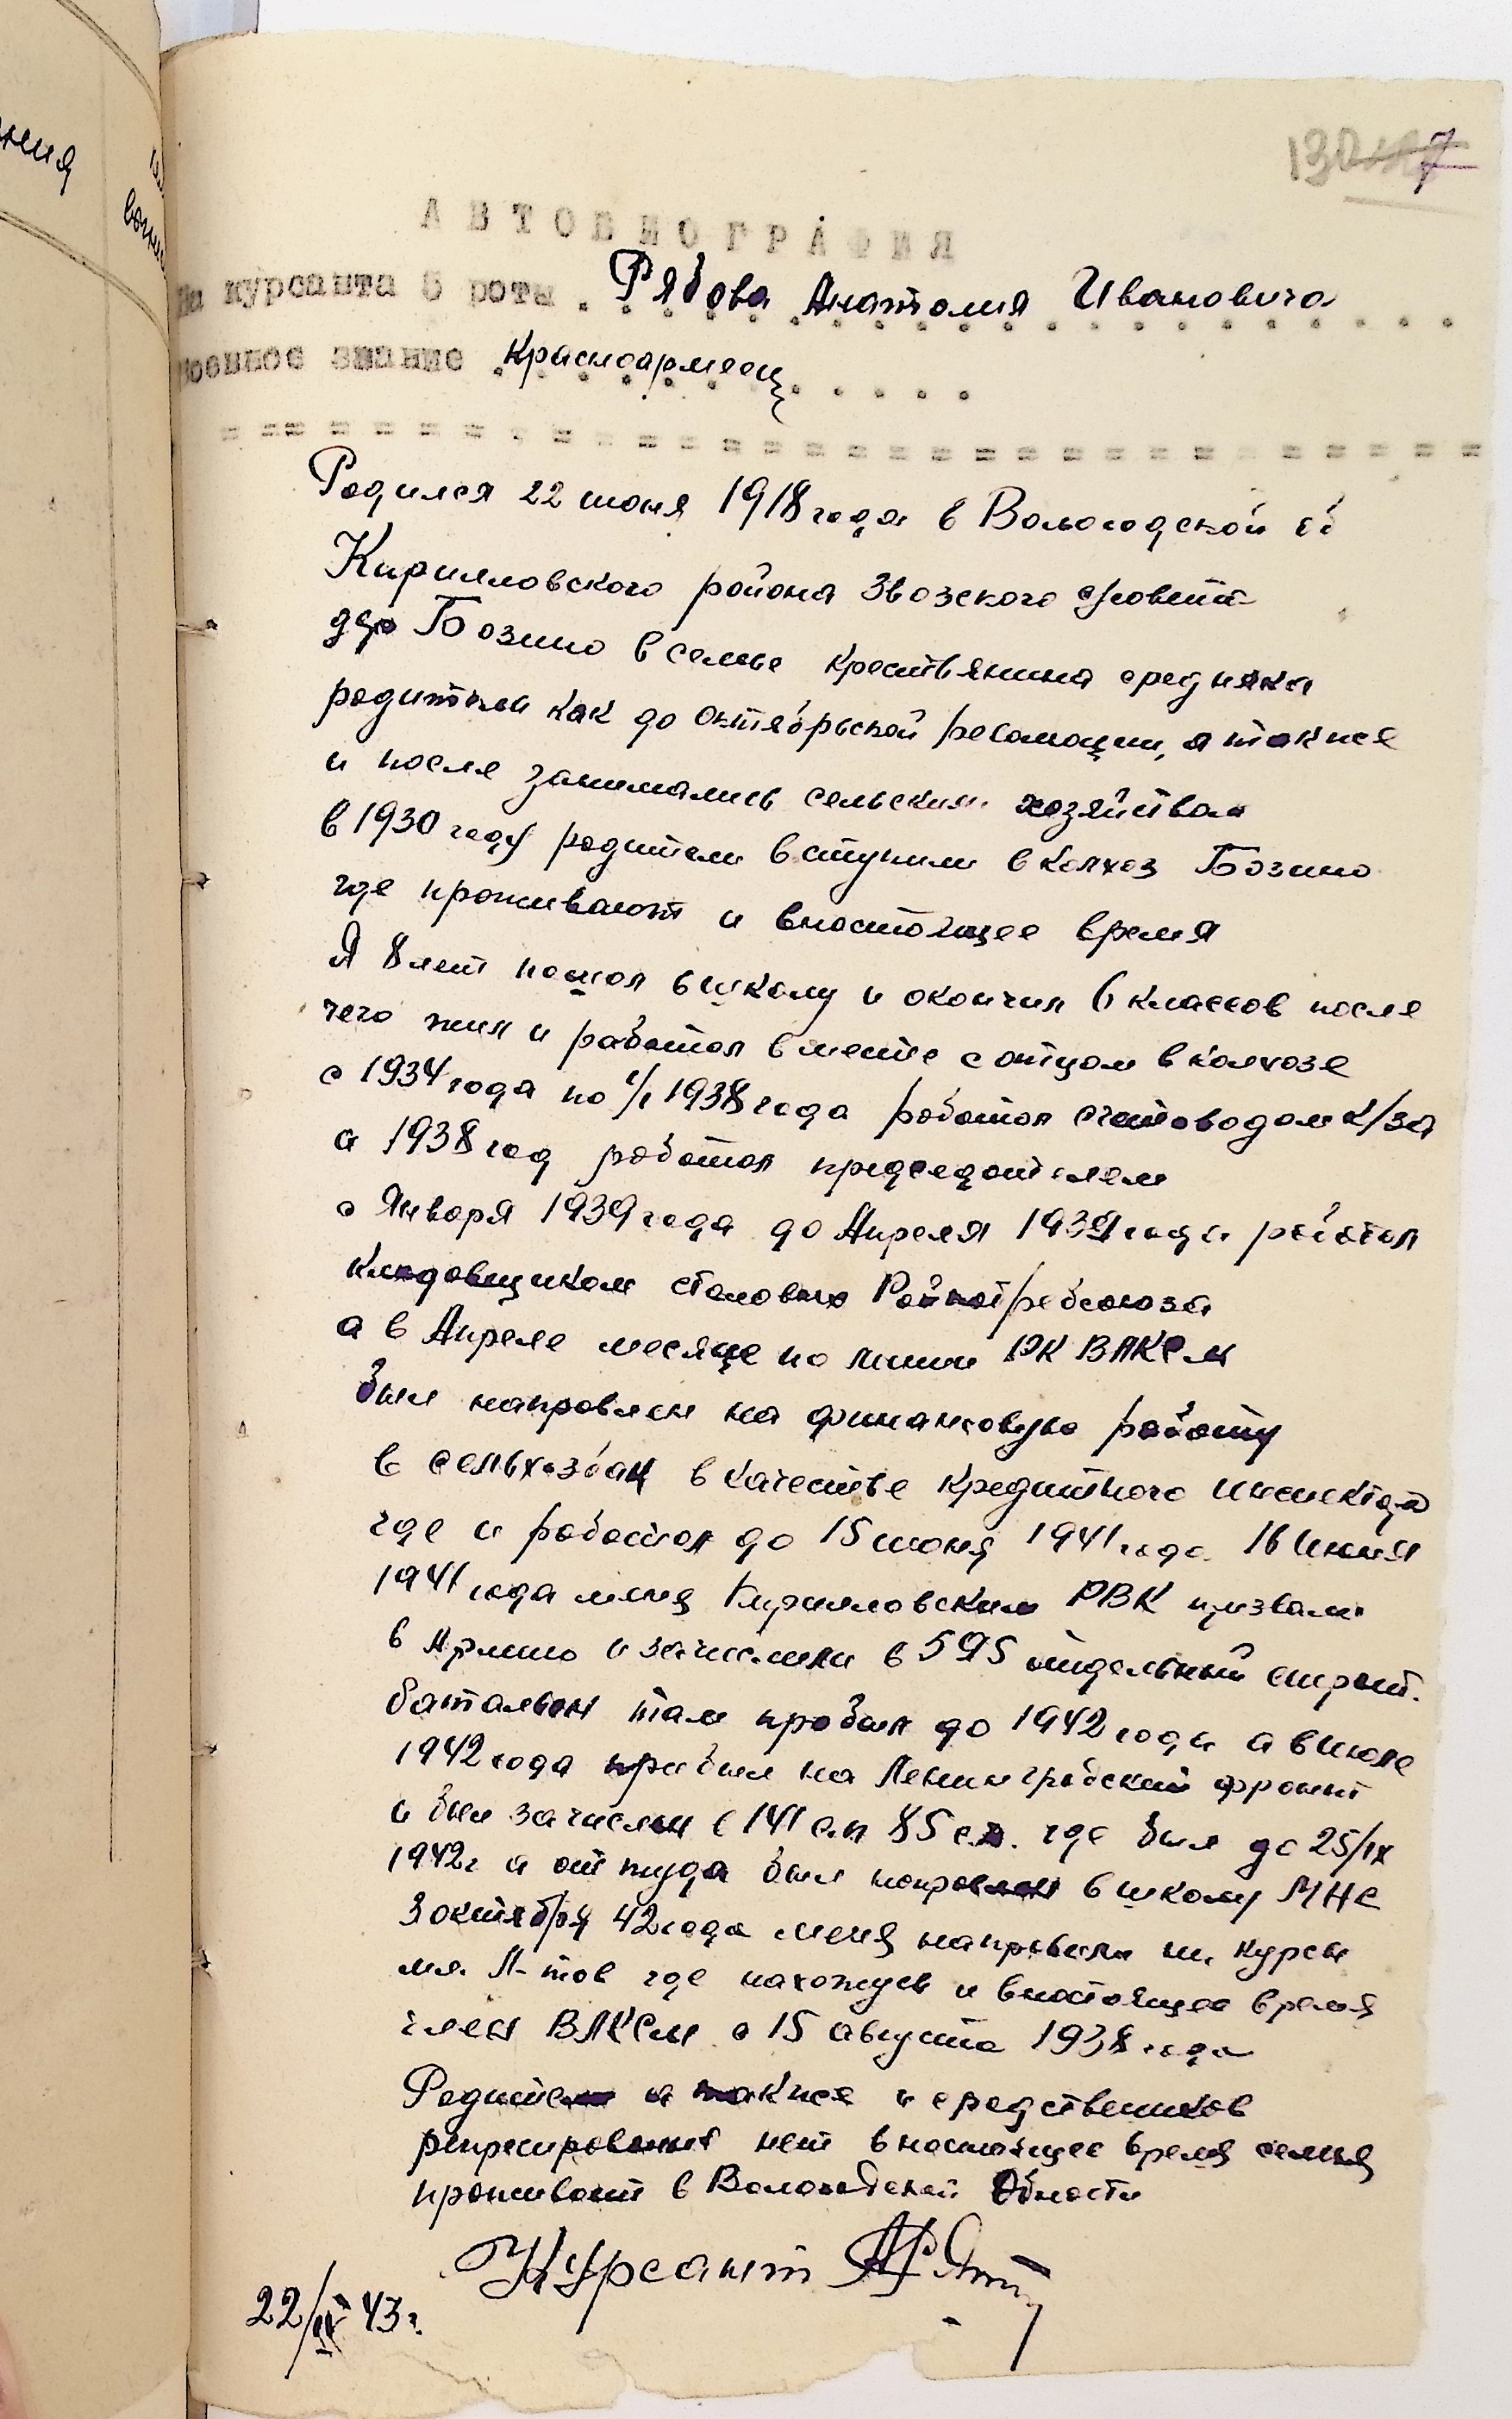 АВТОБИОГРАФИЯ
На курсанта 6 роты . Рябова Анатолия Ивановича
Военное звание Красноармеец
Родился 22 июня 1918 года в Вологодской
Кирилловского района Звозского с/совета
дер Бозино в семье крестьянина средняка
родители как до октябрьской революции, а также
и после занимались сельским хозяйством
в 1930 году родители вступили в колхоз Бозино
где проживают и внастоящее время
Я 8 лет пошол в школу и окончил 6 классов после
чего жил и работал вместе с отцом в колхозе
с 1934 года по 1/I 1938 года работал счетоводом к/за
а 1938 год работал председателем
с Января 1939 года до Апреля 1939 года работал
кладовщиком столовых Райпотребсоюза
а в Апреле месяце по линии РК ВЛКСМ
был направлен на финансовую работу
в сельхозбанк в качестве кредитного инспектора
где и работал до 15 июня 1941 года. 16 Июня
1941 года меня Кирилловским РВК призвали
в Армию и зачислили в 595 отдельный строит.
батальон там пробыл до 1942 года а в июле
1942 года прибыл на Ленинградский фронт
и был зачислен в 141 с.п 85 с.д. где был до 25/IX
1942 г а от туда был направлен в школу МНС
3 октября 42 года меня направили на курсы
мл. Л-тов где нахожусь и внастоящее время
член ВЛКСМ с 15 августа 1938 года
Родители а также и средственников
репресированных нет внастоящее время семья
проживает в Вологодской Области
Курсант
22/IV 43 г.